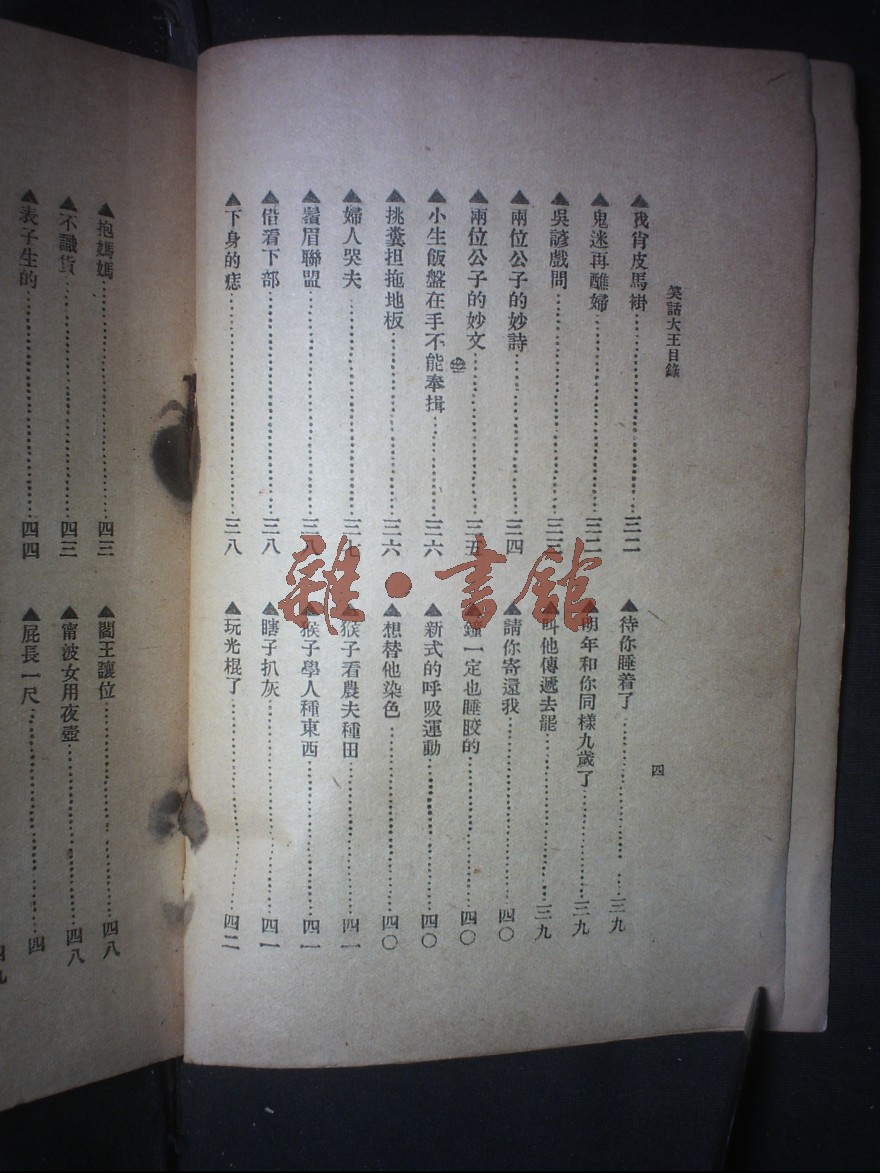 笑話大王目錄
四
▲我肯皮馬褂……三二
▲鬼迷再醮婦……三二
▲吳諺戲問……三三
▲兩位公子的妙詩……三四
▲兩位公子的妙文……三五
▲小生飯盤在手不能奉揖……三六
▲挑糞担拖地板……三六
▲婦人哭夫……三七
▲鬚眉聯盟……三八
▲借看下部……三八
▲下身的痣……三八
▲待你睡着了……三九
▲明年和你同樣九歲了……三九
▲叫他傳遞去罷……三九
▲請你寄還我……四〇
▲鐘一定也睡胶的……四〇
▲新式的呼吸運動……四〇
▲想替他染色……四〇
▲猴子看農夫種田……四一
▲猴子學人種東西……四一
▲瞎子扒灰……四一
▲玩光棍了……四二
▲抱媽媽……四三
▲不識貨……四三
▲表子生的……四四
▲閻王讓位……四八
▲甯波女用夜壺……四八
▲屁長一尺……四
雜·書館